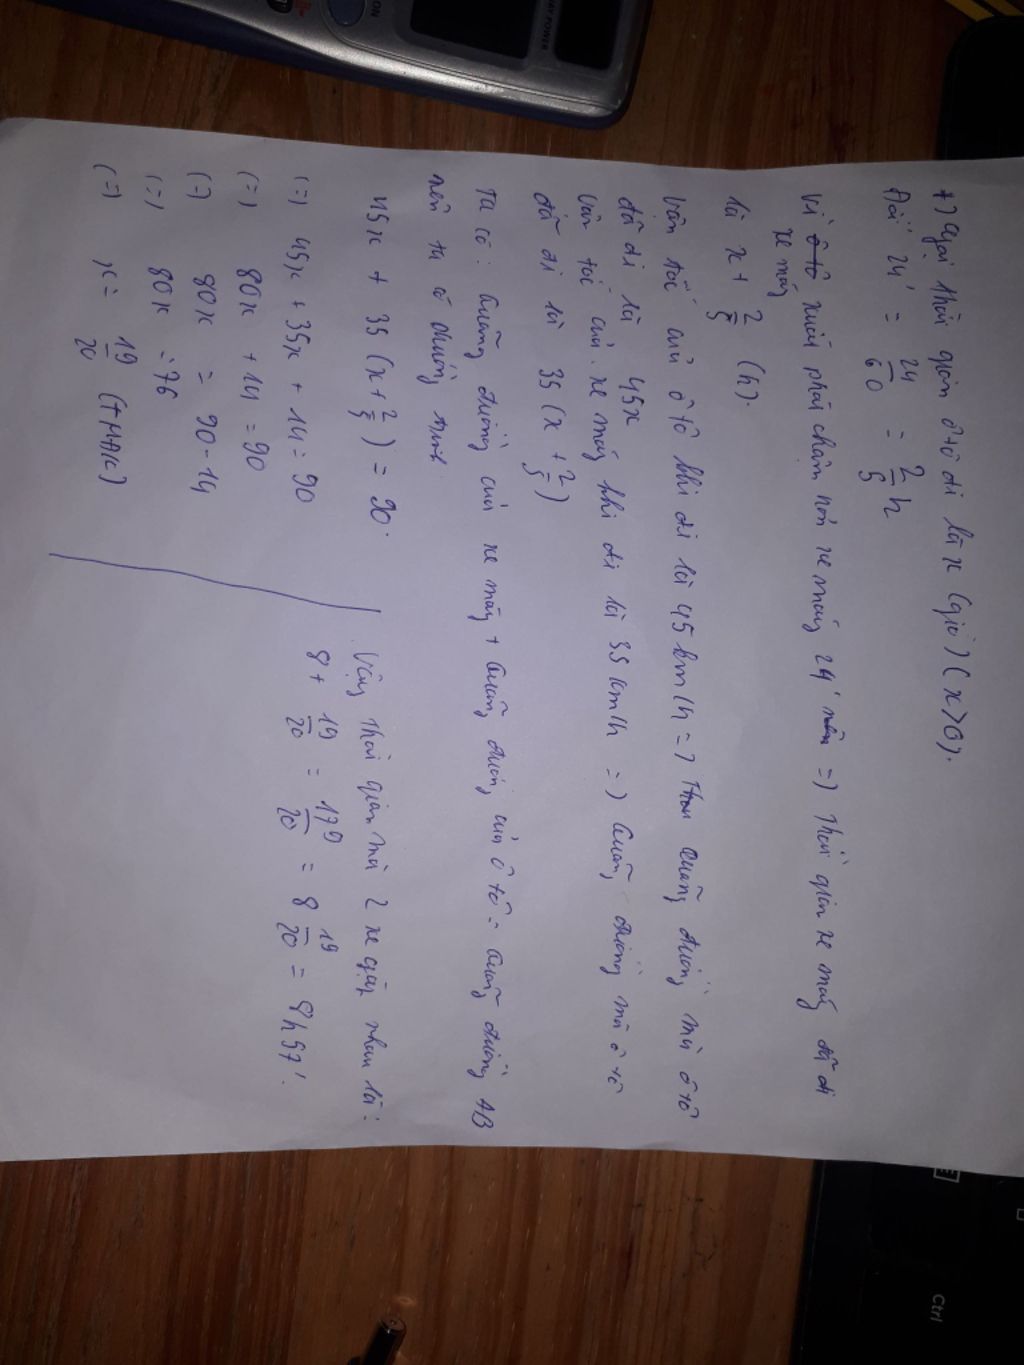 +) Gọi thời gian ô tô đi là x (giờ) (x>0).
Đổi 24' = 24/60 = 2/5 h
Vì ô tô xuất phát chậm hơn xe máy 24' => Thời gian xe máy đã đi
xe máy
là x + 2/5 (h).
Vận tốc của ô tô khi đi là 45 km/h => Quãng đường mà ô tô
đã đi là 45x
Vận tốc của xe máy khi đi là 35 km/h => Quãng đường mà ô tô
đã đi là 35 (x + 2/5)
Ta có: Quãng đường của xe máy + Quãng đường của ô tô = Quãng đường AB
nên ta có phương trình
45x + 35 (x + 2/5) = 90.
(=) 45x + 35x + 14 = 90
(=) 80x + 14 = 90
(=) 80x = 90 - 14
(=) 80x = 76
(=) x = 19/20 (TMĐK)
Vậy thời gian mà 2 xe gặp nhau là:
8 + 19/20 = 179/20 = 8 19/20 = 8h57'.
ON
AY POWER
Ctrl